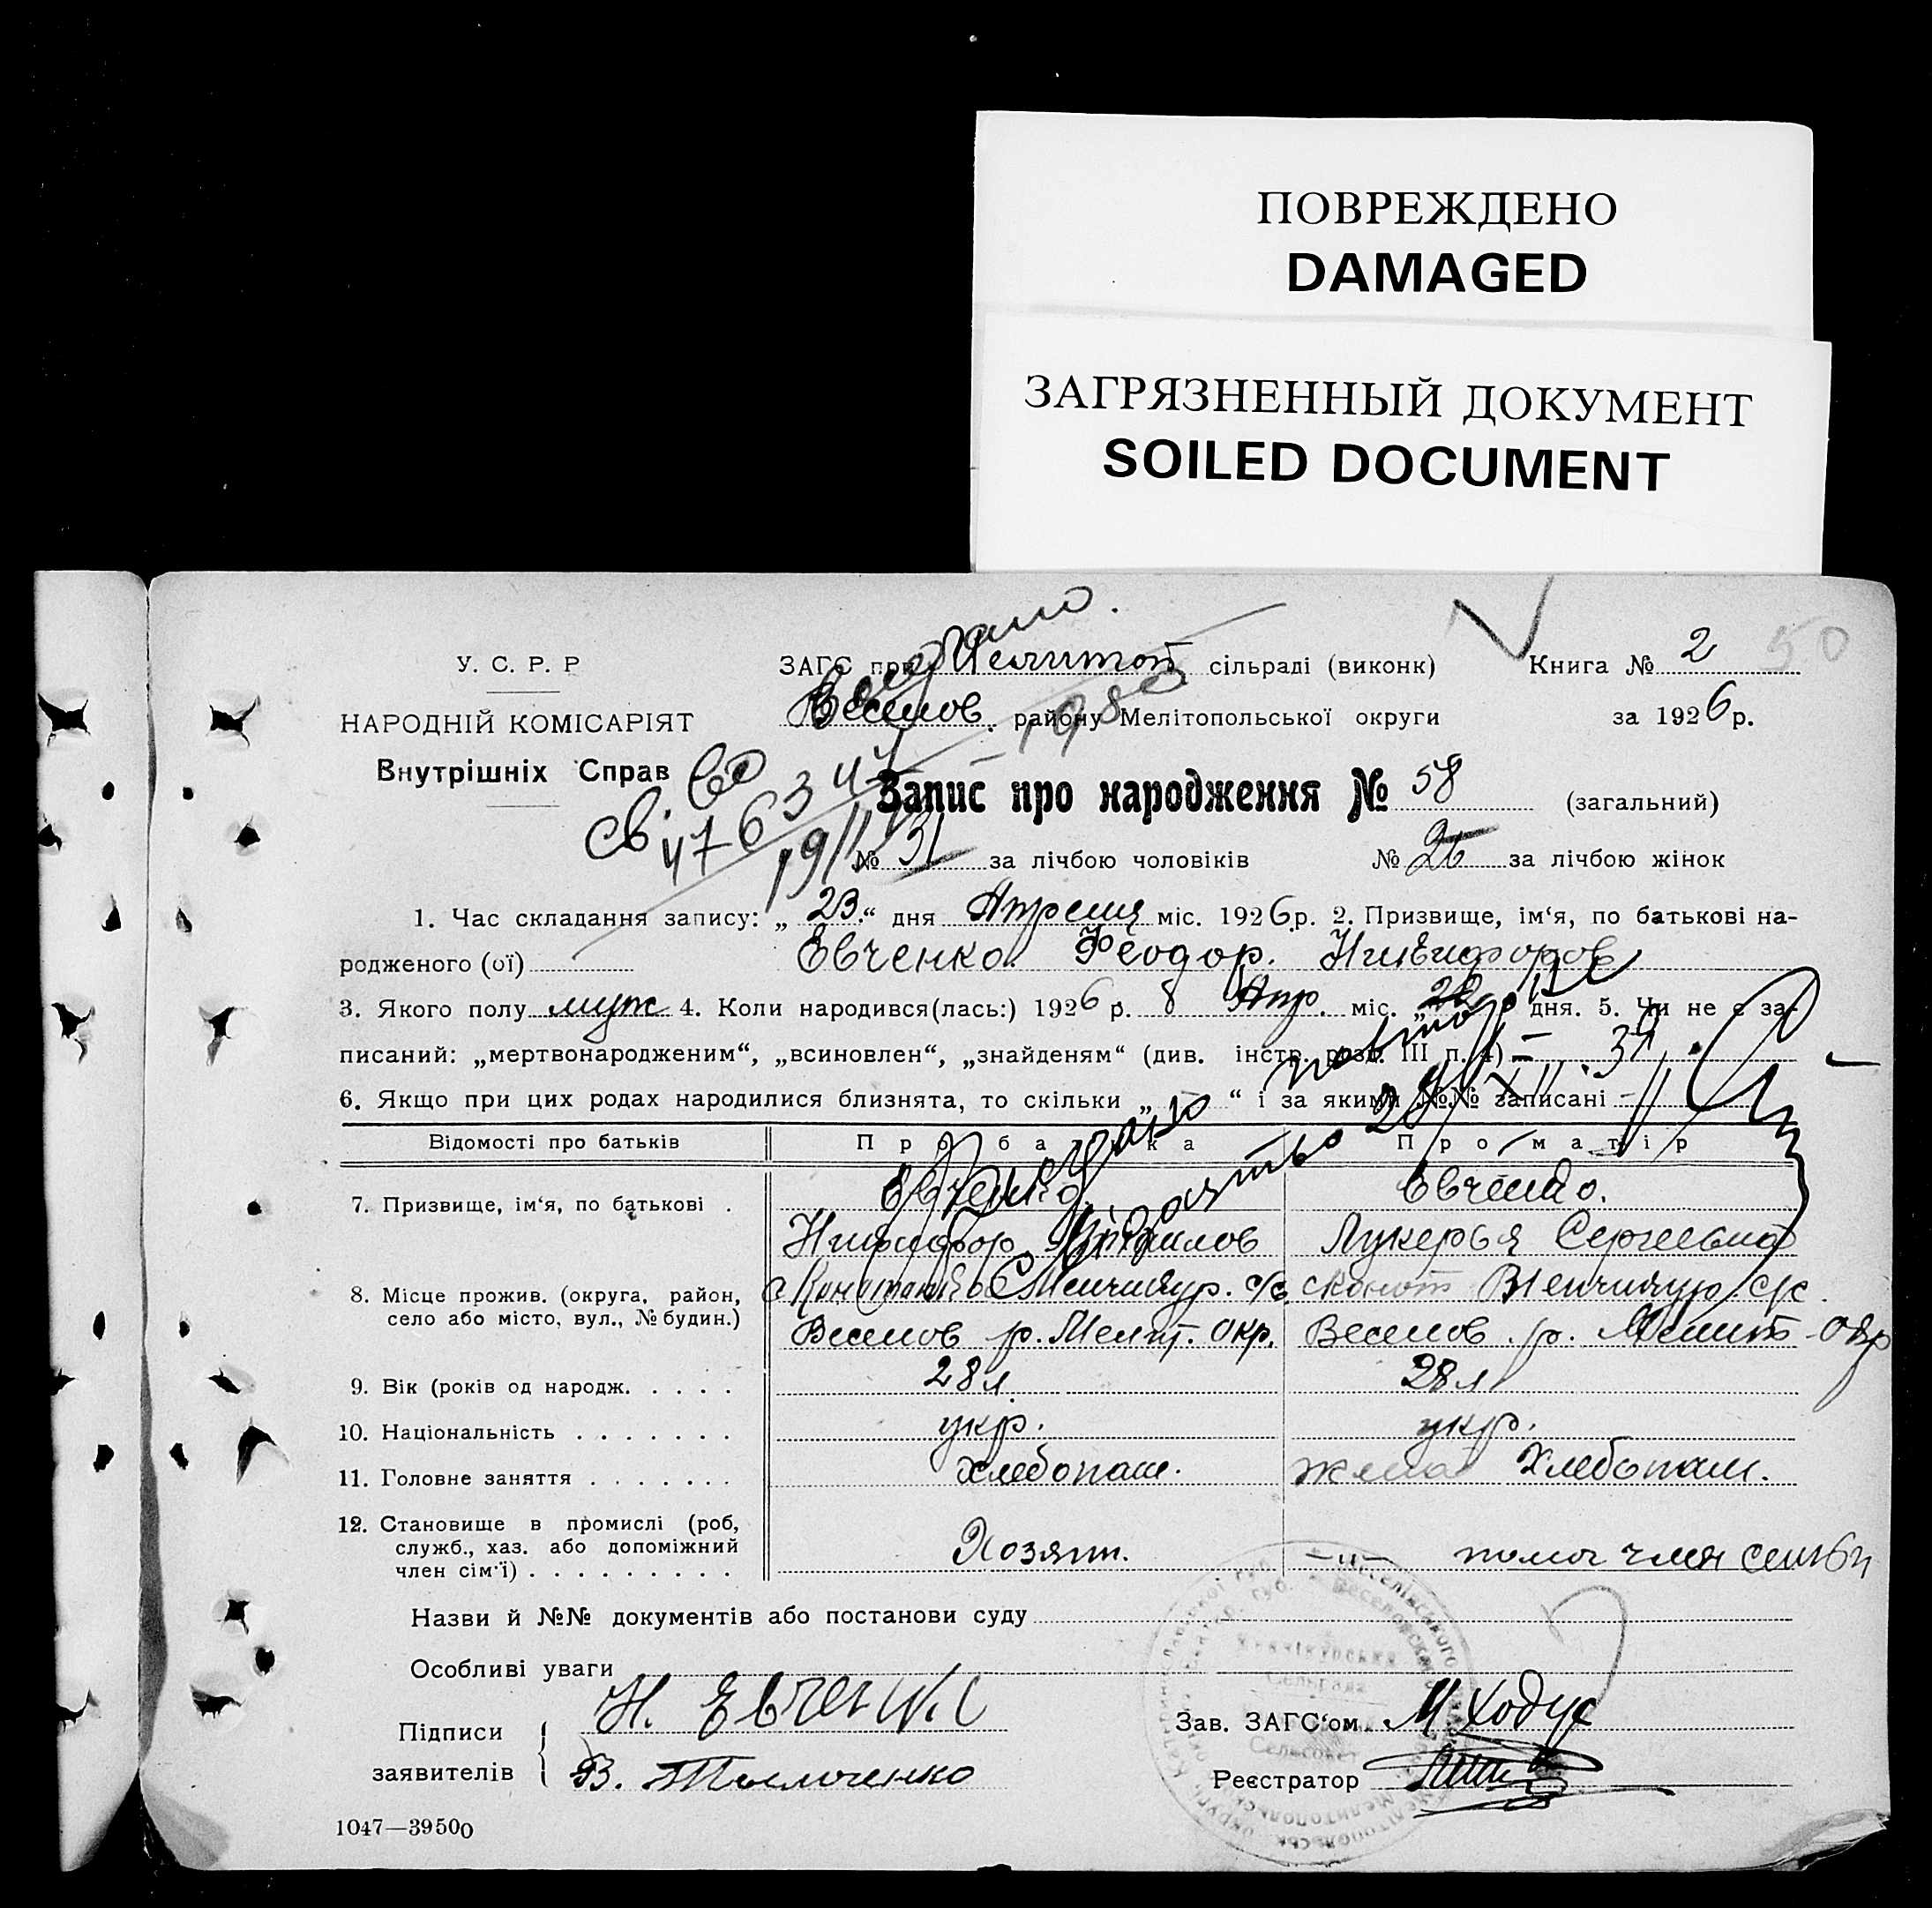 ПОВРЕЖДЕНО
DAMAGED
ЗАГРЯЗНЕННЫЙ ДОКУМЕНТ
SOILED DOCUMENT
У. С. Р. Р
НАРОДНІЙ КОМІСАРІЯТ
Внутрішніх Справ
ЗАГС при сільраді (виконк)
Веселов. району Мелітопольської округи
Книга № 2 50
за 1926 р.
Св.
476347
Запис про народження № 58 (загальний)
№ 31 за лічбою чоловіків № 26 за лічбою жінок
1. Час складання запису: „ 23 “ дня Апреля міс. 1926 р. 2. Призвище, ім‘я, по батькові на-
родженого (ої) Евченко Феодор.
3. Якого полу муж 4. Коли народився(лась:) 1926 р. 8 Апр. міс. „ дня. 5. Чи не є за-
писаний: „мертвонародженим“, „всиновлен“, „знайденям“ (див. інстр. розд. III п. 4)
6. Якщо при цих родах народилися близнята, то скільки „ “ і за якими №№ записані
повторно
Відомості про батьків Про батька Про матір
7. Призвище, ім‘я, по батькові . Евченко Евченко.
Никифор Лукерья Сергеевна
8. Місце прожив. (округа, район,
село або місто, вул., № будин.)
Веселов р. Мелит. окр. Веселов р. Мелит окр
9. Вік (років од народж. . . . . 28 л. 28 л
10. Національність . . . . . . . укр. укр.
11. Головне заняття . . . . . . . хлебопаш. жена Хлебопаш.
12. Становище в промислі (роб,
служб., хаз. або допоміжний
член сім‘ї) . . . . . . . . . Хозяин. –„– помог член семьи
Назви й №№ документів або постанови суду
Особливі уваги
Підписи
заявителів
Н. Евченко
Зав. ЗАГС‘ом М Ходус
Реєстратор
1047—39500